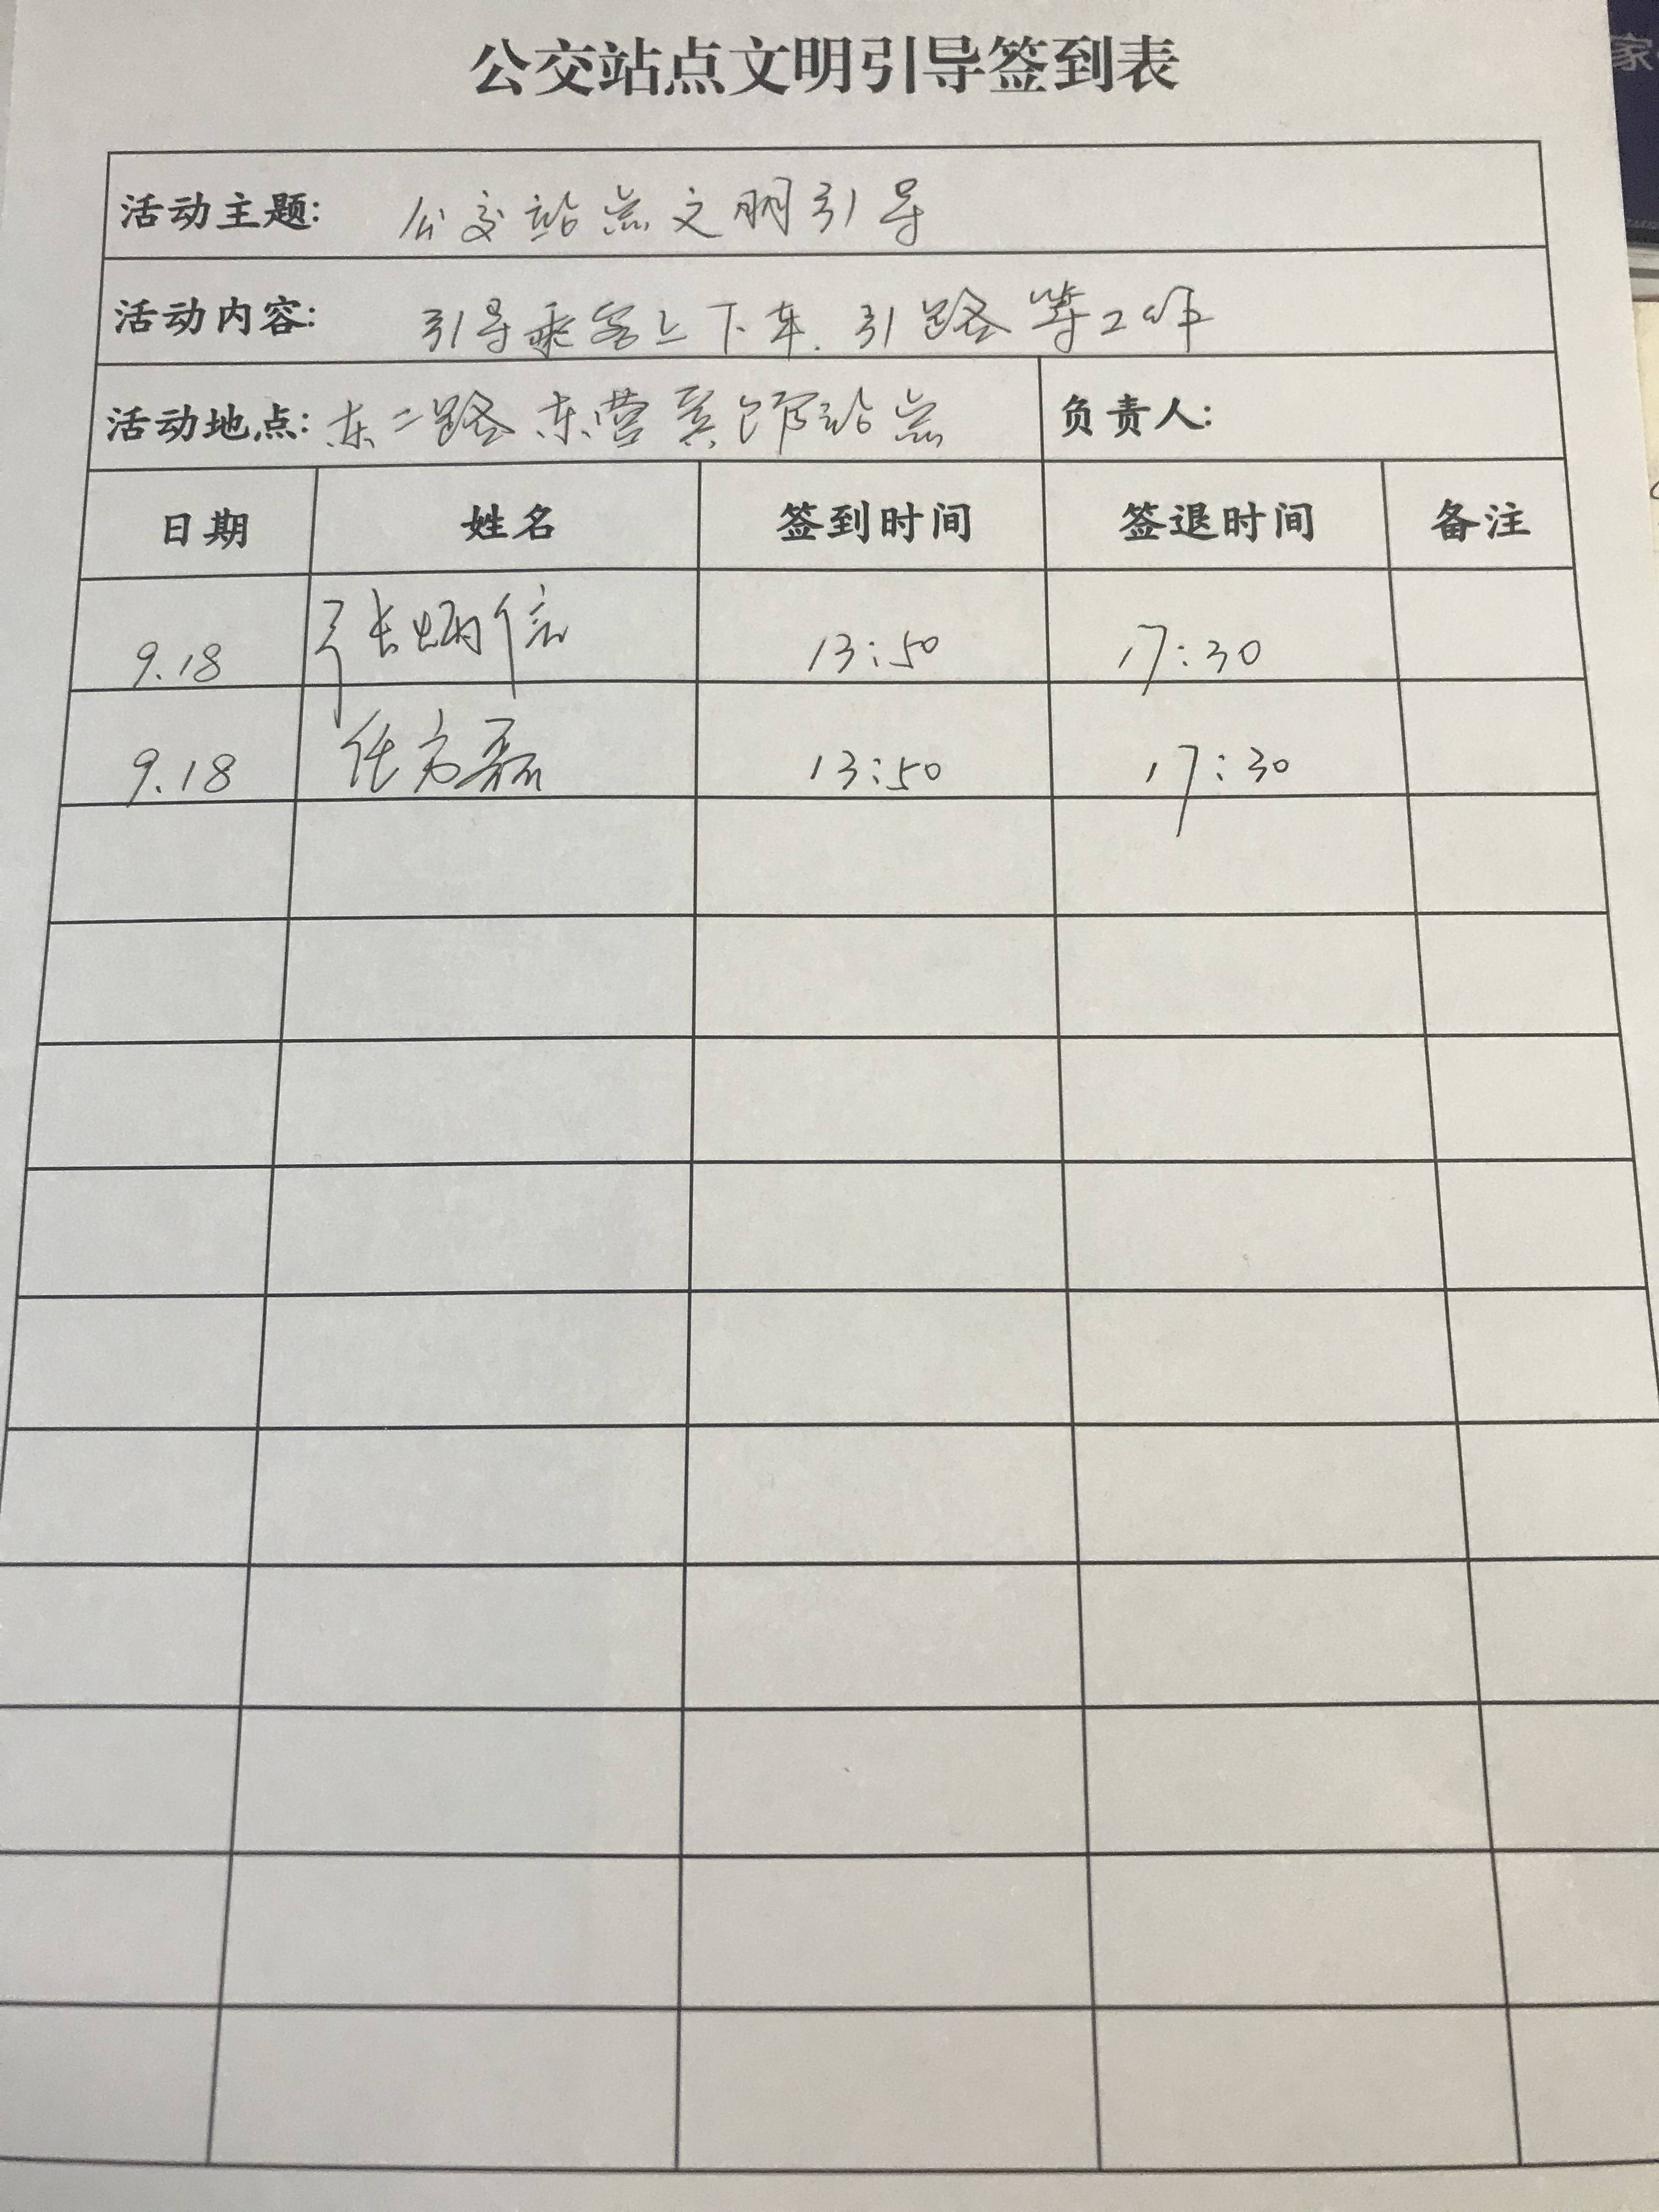 公交站点文明引导签到表
活动主题: 公交站点文明引导
活动内容: 引导乘客上下车.引路等工作
活动地点: 东二路东营宾馆站点 负责人:
日期 姓名 签到时间 签退时间 备注
9.18 张炳信 13:50 17:30
9.18 任方磊 13:50 17:30
家